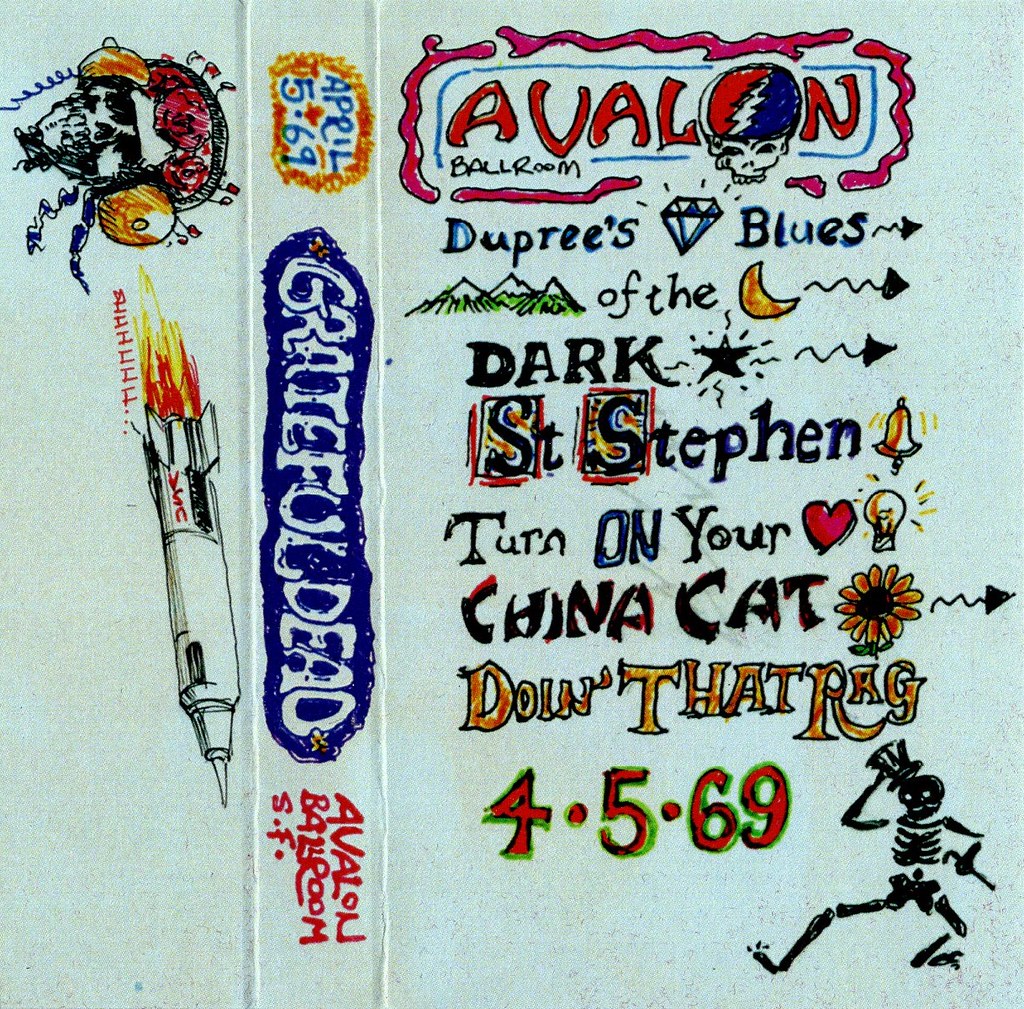 SHHHHHH...
USC
APRIL
5·69
GRATEFUL DEAD
AVALON
BALLROOM
S.F.
AVALON
BALLROOM
Dupree's Blues
of the
DARK
St Stephen
Turn ON Your
CHINA CAT
DOIN' THAT RAG
4·5·69